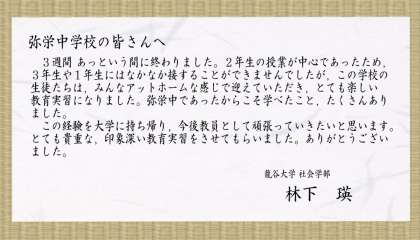 弥栄中学校の皆さんへ
３週間 あっという間に終わりました。２年生の授業が中心であったため，
３年生や１年生にはなかなか接することができませんでしたが，この学校の
生徒たちは，みんなアットホームな感じで迎えていただき，とても楽しい
教育実習になりました。弥栄中であったからこそ学べたこと，たくさんあり
ました。
この経験を大学に持ち帰り，今後教員として頑張っていきたいと思います。
とても貴重な，印象深い教育実習をさせてもらいました。ありがとうござい
ました。
龍谷大学 社会学部
林下　瑛